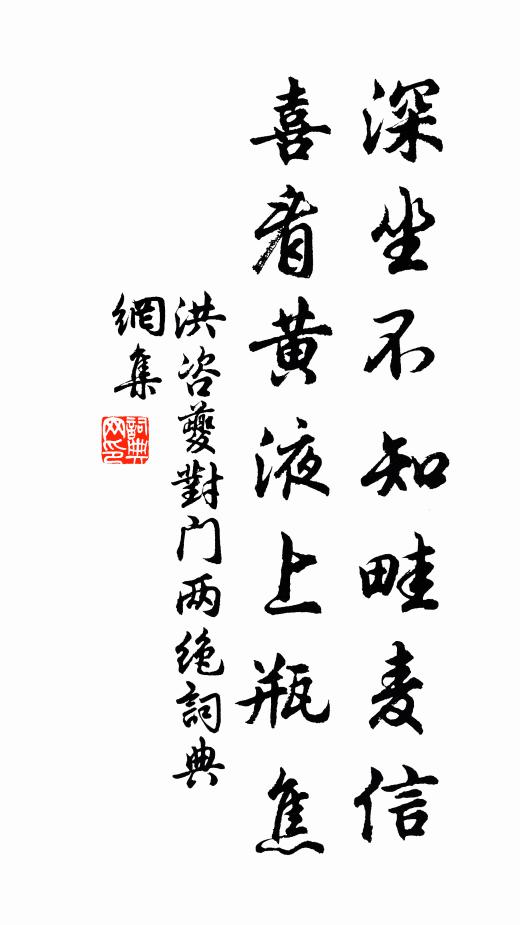 深坐不知畦麦信
喜看黄液上瓶焦
洪咨夔對门两绝詞典
網集
詞典
网印